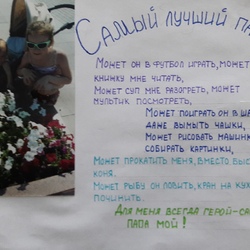 Самый лучший па
Может он в футбол играть, может
книжку мне читать,
Может суп мне разогреть, может
мультик посмотреть,
Может поиграть он в ша
даже вымыть чашки,
Может рисовать машинк
собирать картинки,
Может прокатить меня, вместо быс
коня.
Может рыбу он ловить, кран на кух
починить.
Для меня всегда герой - са
папа мой!